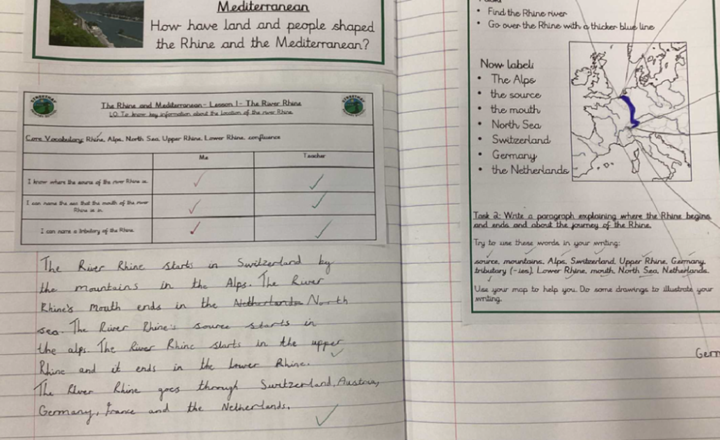 Mediterranean
How have land and people shaped
the Rhine and the Mediterranean?
The Rhine and Mediterranean - Lesson 1 - The River Rhine
LO: To know key information about the location of the river Rhine.
Core Vocabulary: Rhine, Alps, North Sea, Upper Rhine, Lower Rhine, confluence
Me Teacher
I know where the source of the river Rhine is.
I can name the sea that the mouth of the river
Rhine is in.
I can name a tributary of the Rhine.
The River Rhine starts in Switzerland by
the mountains in the Alps. The River
Rhine's Mouth ends in the Netherlands North
sea. The River Rhine's source starts in
the alps. The River Rhine starts in the upper
Rhine and it ends in the lower Rhine.
The River Rhine goes through Switzerland, Austria,
Germany, France and the Netherlands.
• Find the Rhine river
• Go over the Rhine with a thicker blue line
Now label:
• The Alps
• the source
• the mouth
• North Sea
• Switzerland
• Germany
• the Netherlands
Task 2: Write a paragraph explaining where the Rhine begins
and ends and about the journey of the Rhine.
Try to use these words in your writing:
source, mountains, Alps, Switzerland, Upper Rhine, Germany,
tributary (-ies), Lower Rhine, mouth, North Sea, Netherlands.
Use your map to help you. Do some drawings to illustrate your
writing.
Germ